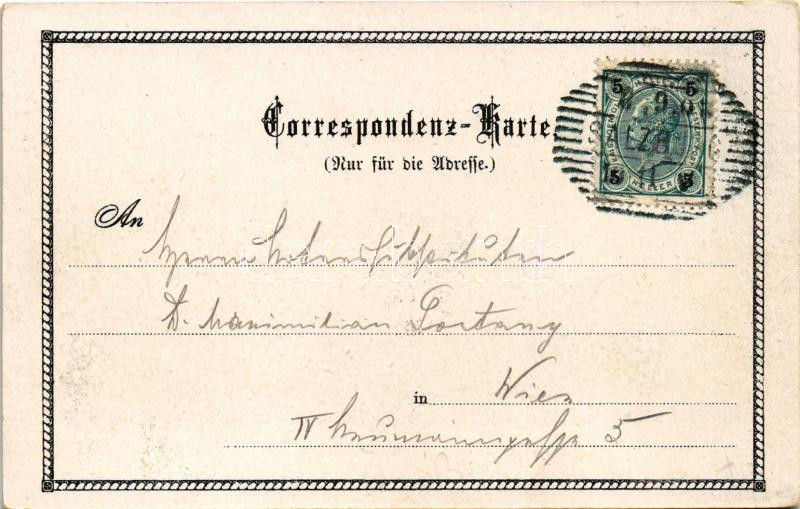 Correspondenz-Karte.
(Nur für die Adresse.)
5 5
5 HELLER 5
An
Herrn
Dr. Maximilian
in Wien
IV Neumanngasse 5